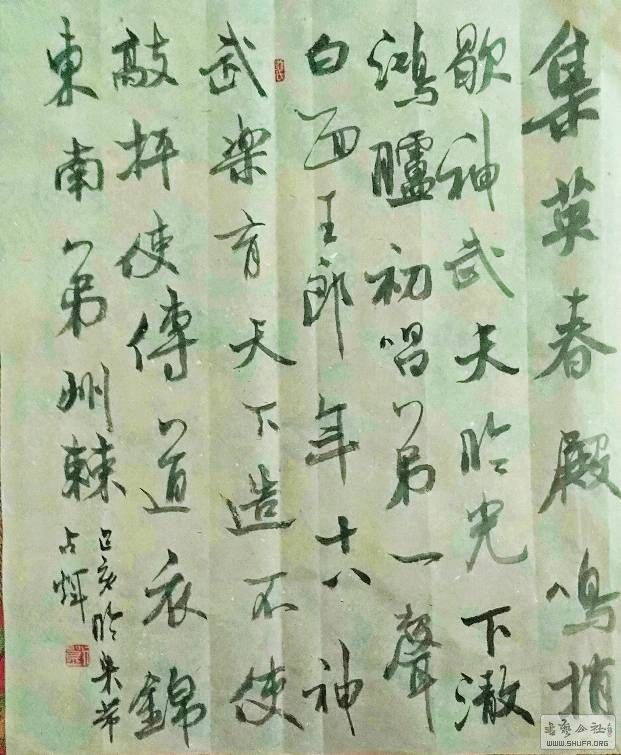 集英春殿鳴捎
歇神武天临光下澈
鴻臚初唱第一聲
白面王郎年十八神
武樂育天下造不使
敲枰使傳道衣錦
東南第州棘
己亥临米芾
占輝
書藝公社
WWW.SHUFA.ORG